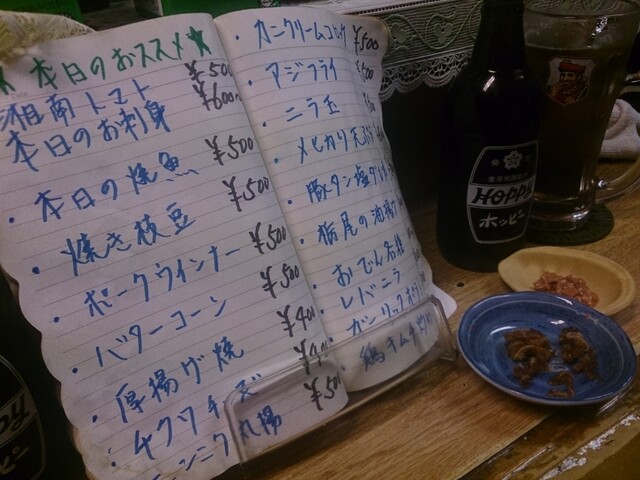 ★ 本日のおススメ ★
湘南トマト ¥500
本日のお刺身 ¥600
・本日の焼魚 ¥500
・焼き枝豆 ¥500
・ポークウインナー ¥500
・バターコーン ¥500
・厚揚げ焼 ¥400
・チクワチーズ
ニンニク丸揚 ¥50
・カニクリームコロッケ ¥500
・アジフライ
・ニラ玉
・メヒカリ天ぷら
・豚タン塩
・栃尾の油揚げ
・おでん各種
・レバニラ
・ガーリック
・鶏キムチ
HOPPY
ホッピー